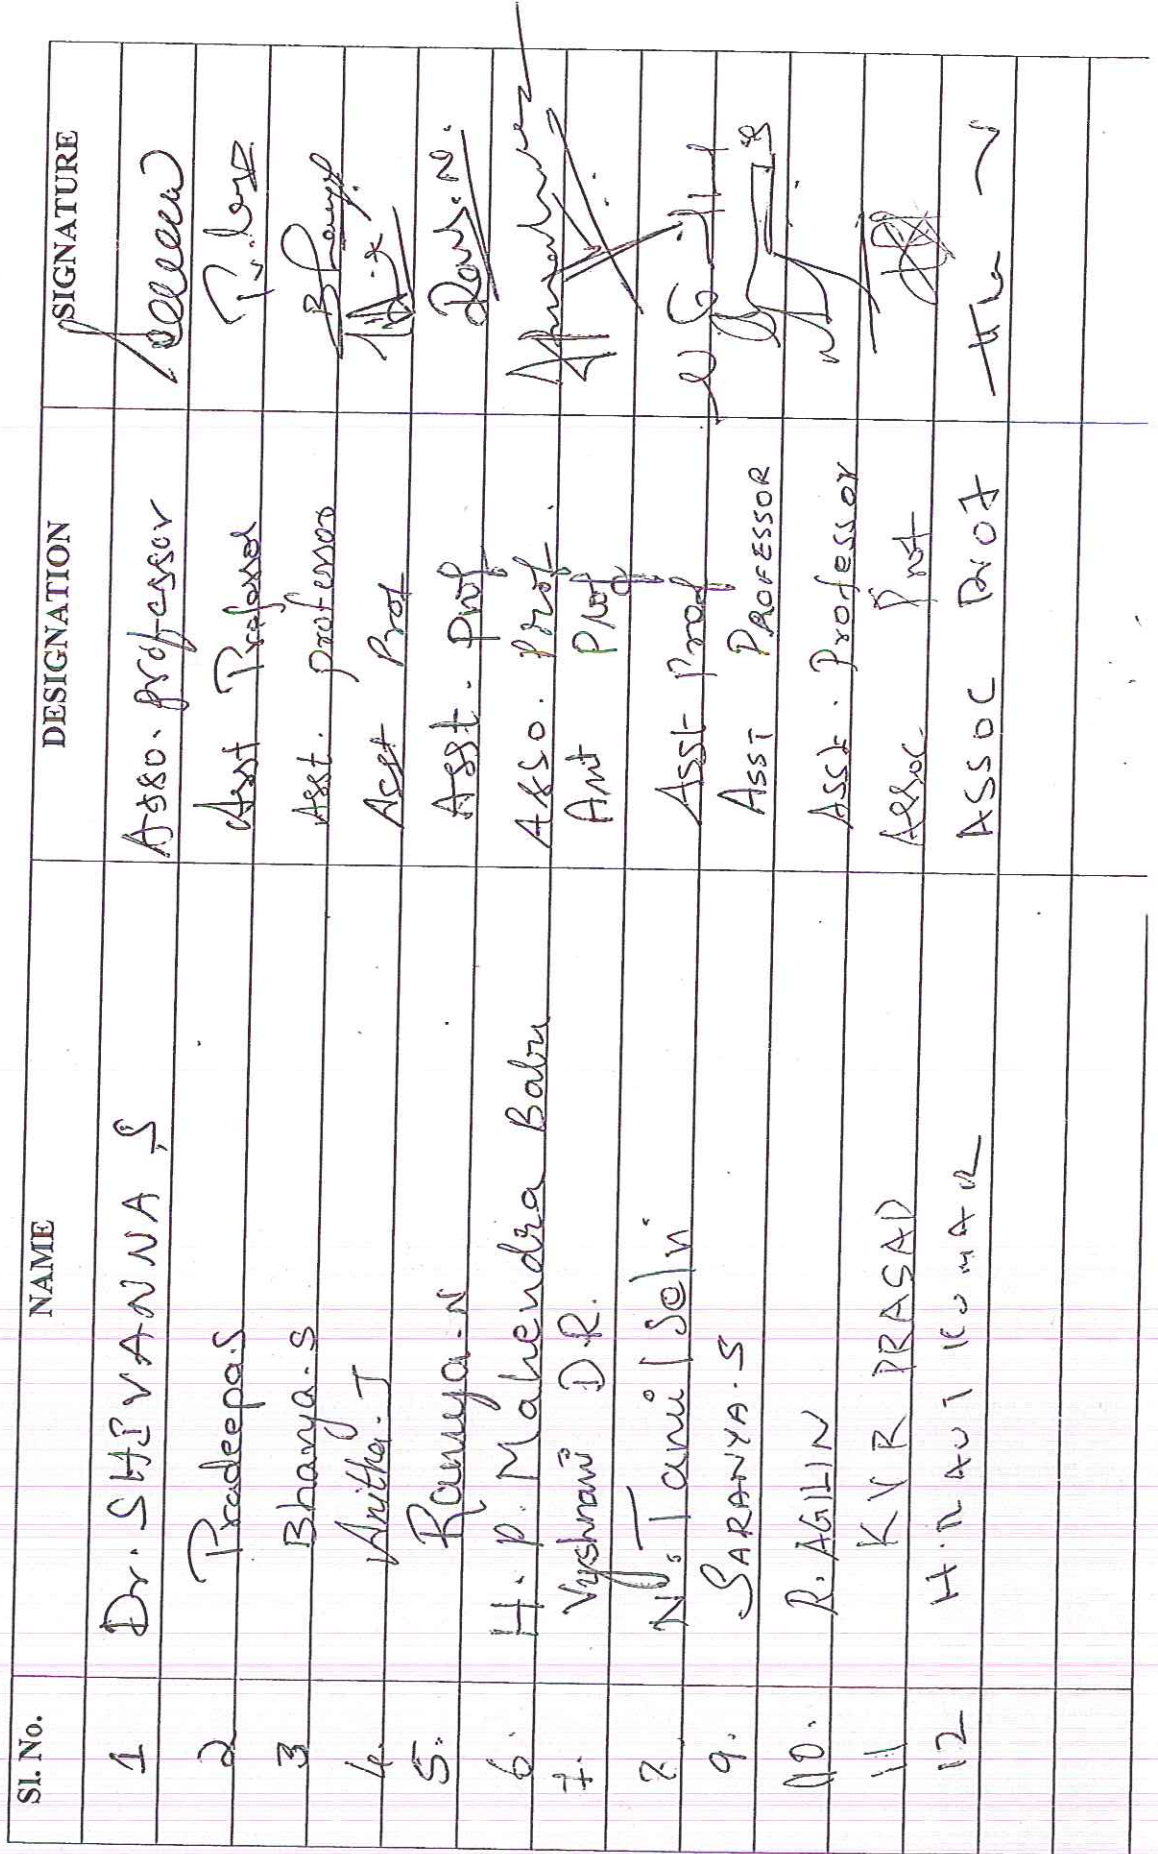 Sl. No. NAME DESIGNATION SIGNATURE
1 Dr. SHIVANNA S Asso. professor
2 Pradeepa.S Asst Professor
3 Bhanya.S Asst. professor
4. Anitha.J Asst Prof
5. Ramya.N Asst. Prof
6. H. P. Mahendra Babu Asso. Prof.
7. Vyshnavi D R. Asst Prof
8 N. Tamil Selvi Asst Prof
9. SARANYA.S ASST PROFESSOR
10. R. AGILIN Asst. Professor
11 K V R PRASAD Assoc. Prof
12 KUMAR ASSOC Prof